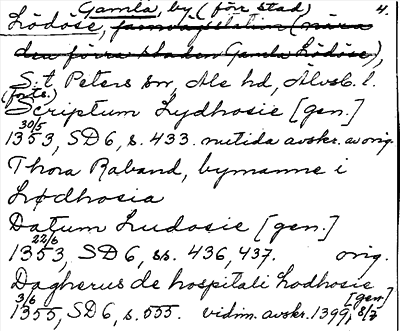 Gamla, by (förr stad) 4.
Lödöse, järnvägsstation (nära
den förra staden Gamla Lödöse),
S:t Peters sn, Ale hd, Älvsb. l.
(forts.)
Scriptum Lydhosie [gen.]
30/5
1353, SD 6, s. 433. nutida avskr. av orig.
Thora Raband, bymanne i
Lødhosia
Datum Ludosie [gen.]
22/6
1353, SD 6, ss. 436, 437. orig.
Dagherus de hospitali Lodhosie
[gen.]
3/6
1355, SD 6, s. 555. vidim. avskr. 1399, 8/7